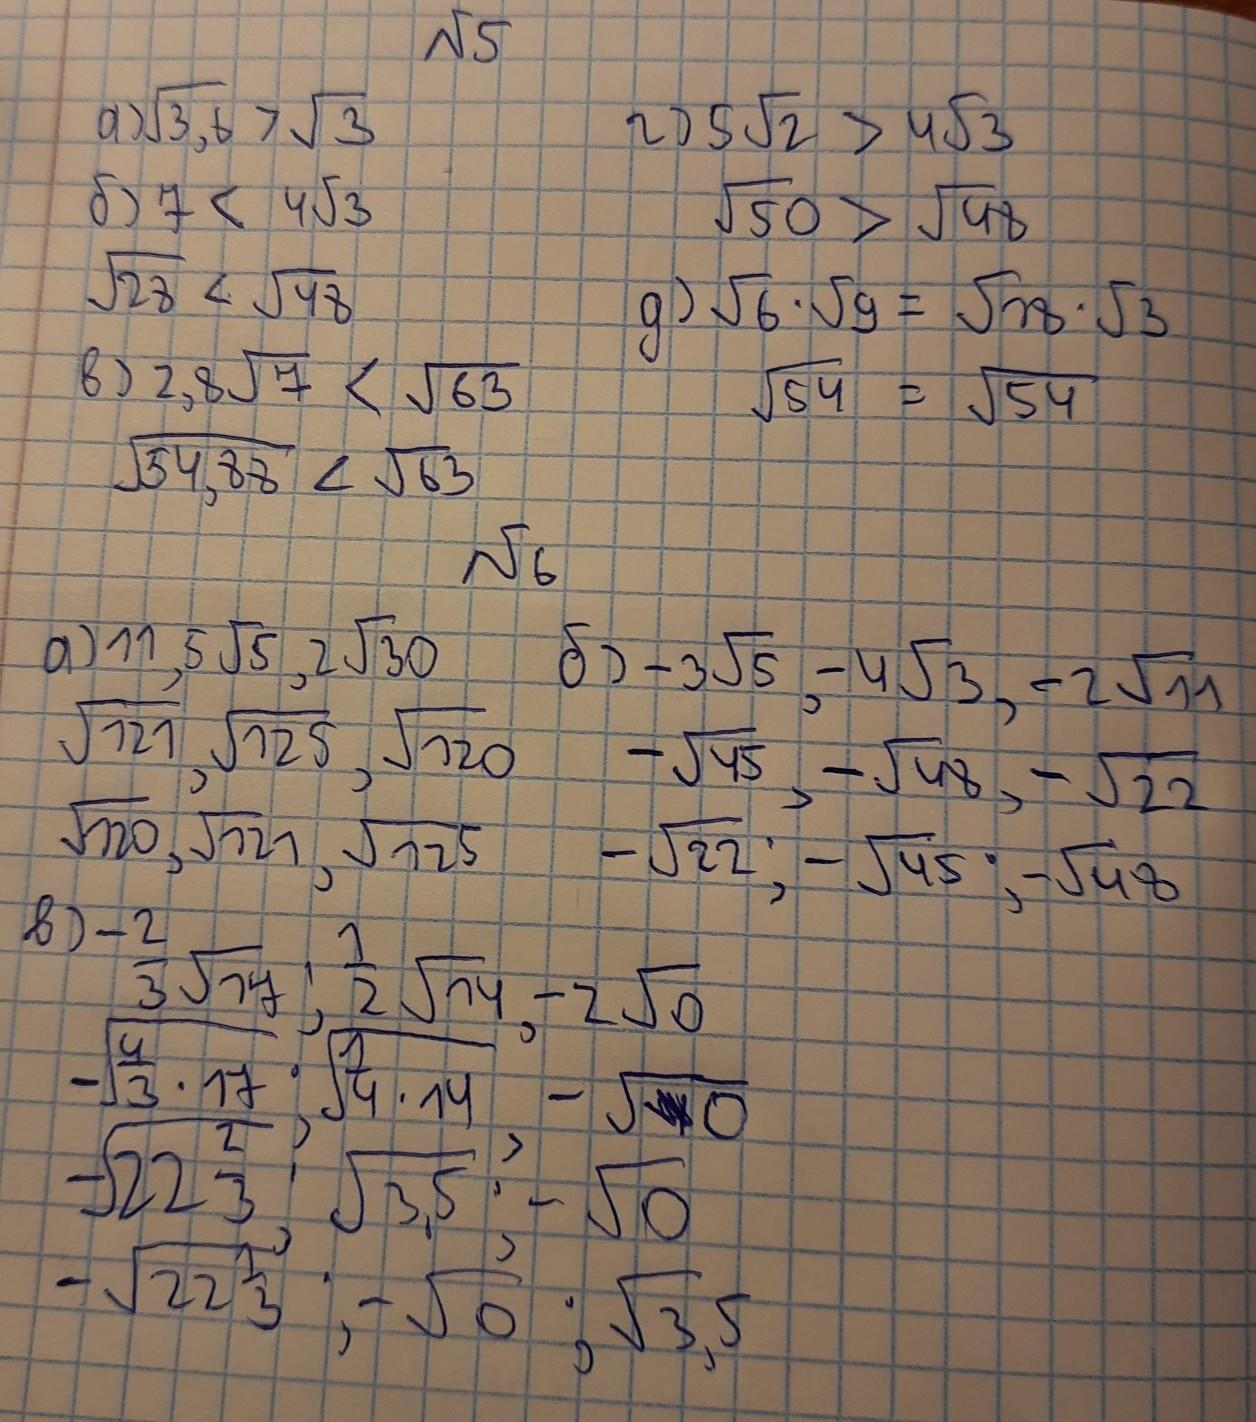 №5
а) √3,6 > √3
б) 7 < 4√3
√28 < √48
в) 2,8√7 < √63
√54,88 < √63
г) 5√2 > 4√3
√50 > √48
д) √6 · √9 = √18 · √3
√54 = √54
№6
а) 11, 5√5, 2√30
√121, √125, √120
√120, √121, √125
б) -3√5, -4√3, -2√11
-√45, -√48, -√22
-√22; -√45; -√48
в) -2/3√17; 1/2√14, -2√0
-√4/3 · 17; √1/4 · 14, -√0
-√22 2/3; √3,5; -√0
-√22 1/3; -√0; √3,5